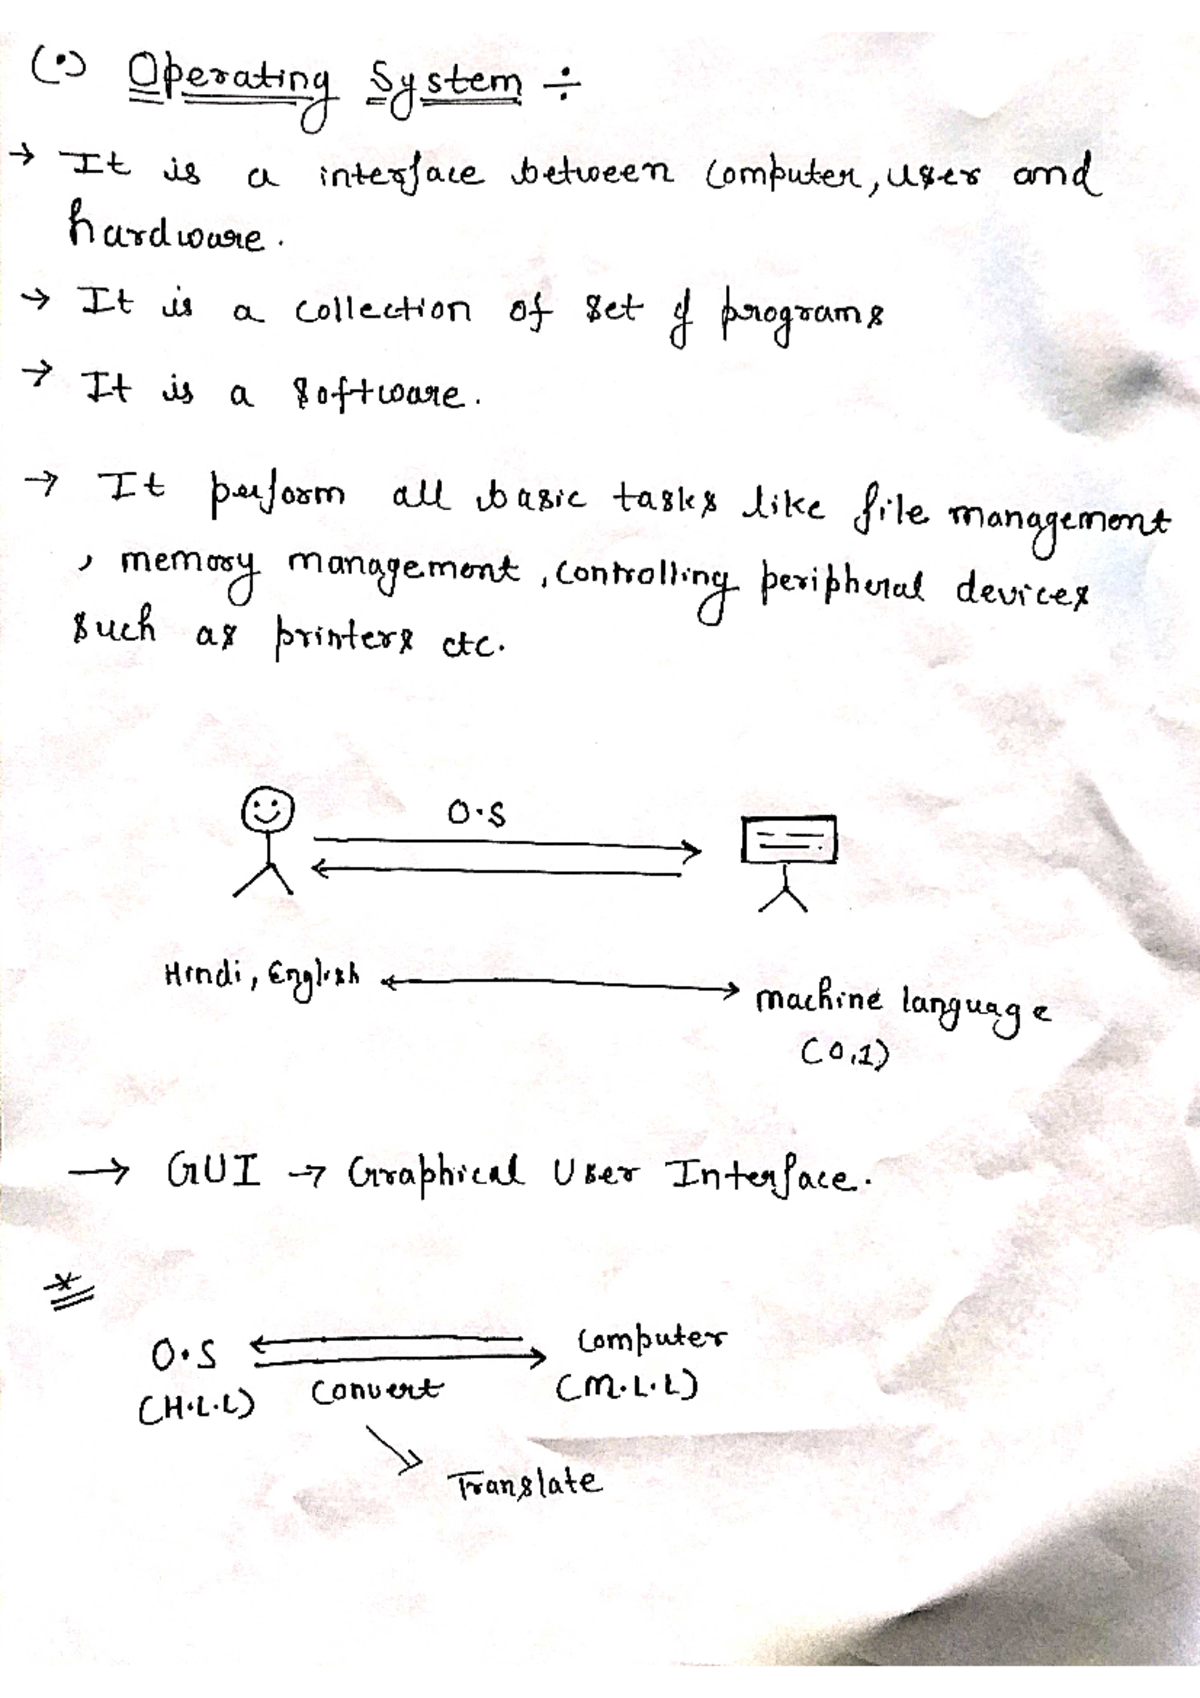 (•) Operating System ÷
→ It is a interface between computer, user and
hardware.
→ It is a collection of set of programs
→ It is a software.
→ It perform all basic tasks like file management
, memory management, controlling peripheral devices
such as printers etc.
O.S
Hindi, English ↔ machine language
(0,1)
→ GUI → Graphical User Interface.
*
O.S Computer
(H.L.L) Convert (M.L.L)
Translate